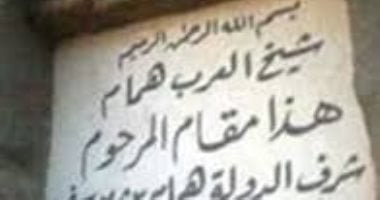 بسم الله الرحمن الرحيم
شيخ العرب همام
هذا مقام المرحوم
شرف الدولة همام بن يوسف